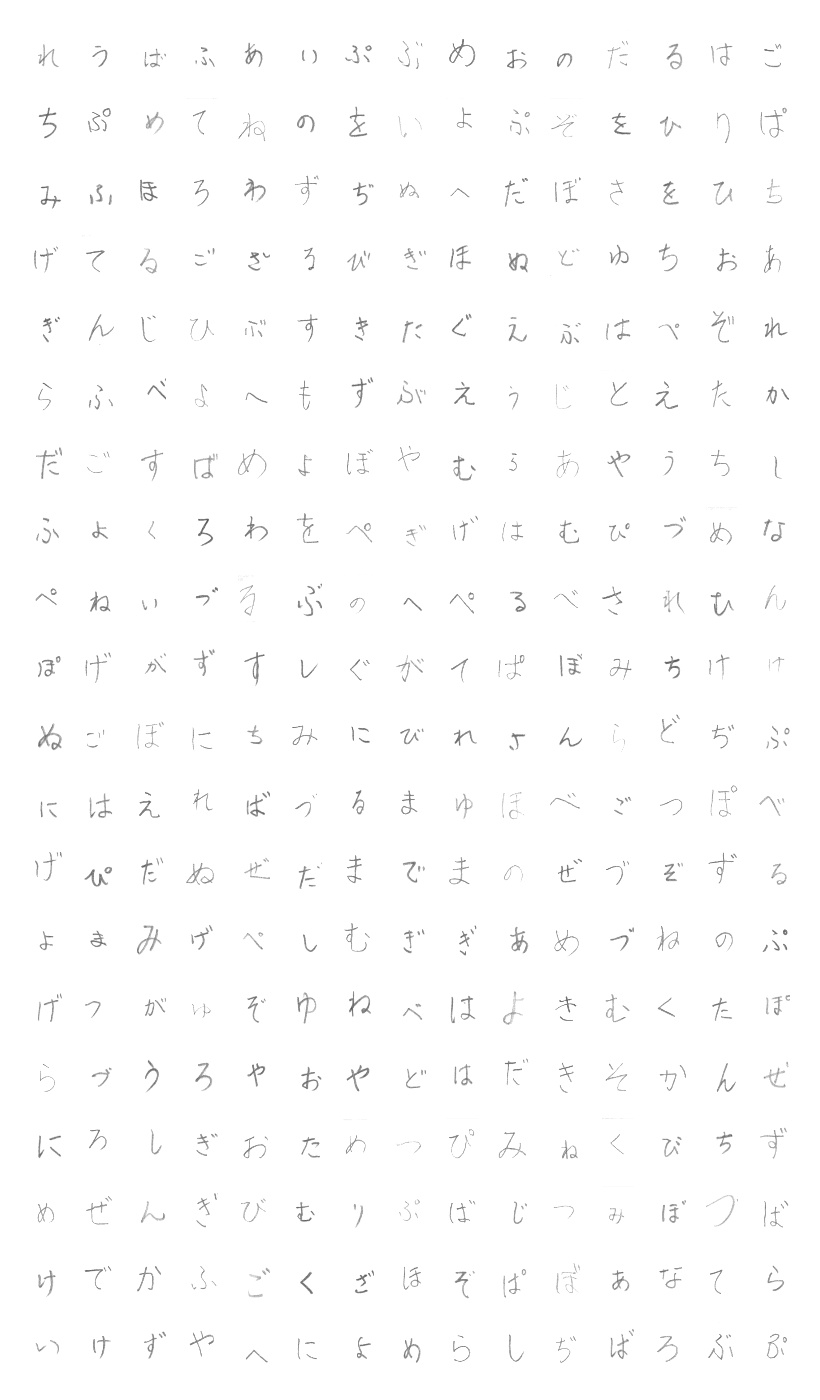 れうばふあいぷぶめおのだるはご
ちぷめてねのをいよぷぞをひりぱ
みふほろわずぢぬへだぼさをひち
げてるござるびぎほぬどゆちおあ
ぎんじひぶすきたぐえぶはぺぞれ
らふべよへもずぶえぅじとえたか
だごすばめょぼやむぅあやうちし
ふよくろわをぺぎげはむぴづめな
ぺねいづるぶのへぺるべされむん
ぽげがずすしぐがてぱぼみちけけ
ぬごぼにちみにびれさんらどぢぷ
にはえればづるまゆほべごつぽべ
げぴだぬぜだまでまのぜづぞずる
よまみげぺしむぎぎあめづねのぷ
げつがゅぞゆねべはよきむくたぽ
らづうろやおやどはだきそかんぜ
にろしぎおためつぴみねくびちず
めぜんぎびむりぷばじつみぼづば
けでかふごくざほぞぱぼあなてら
いけずやへによめらしぢばろぶぷ